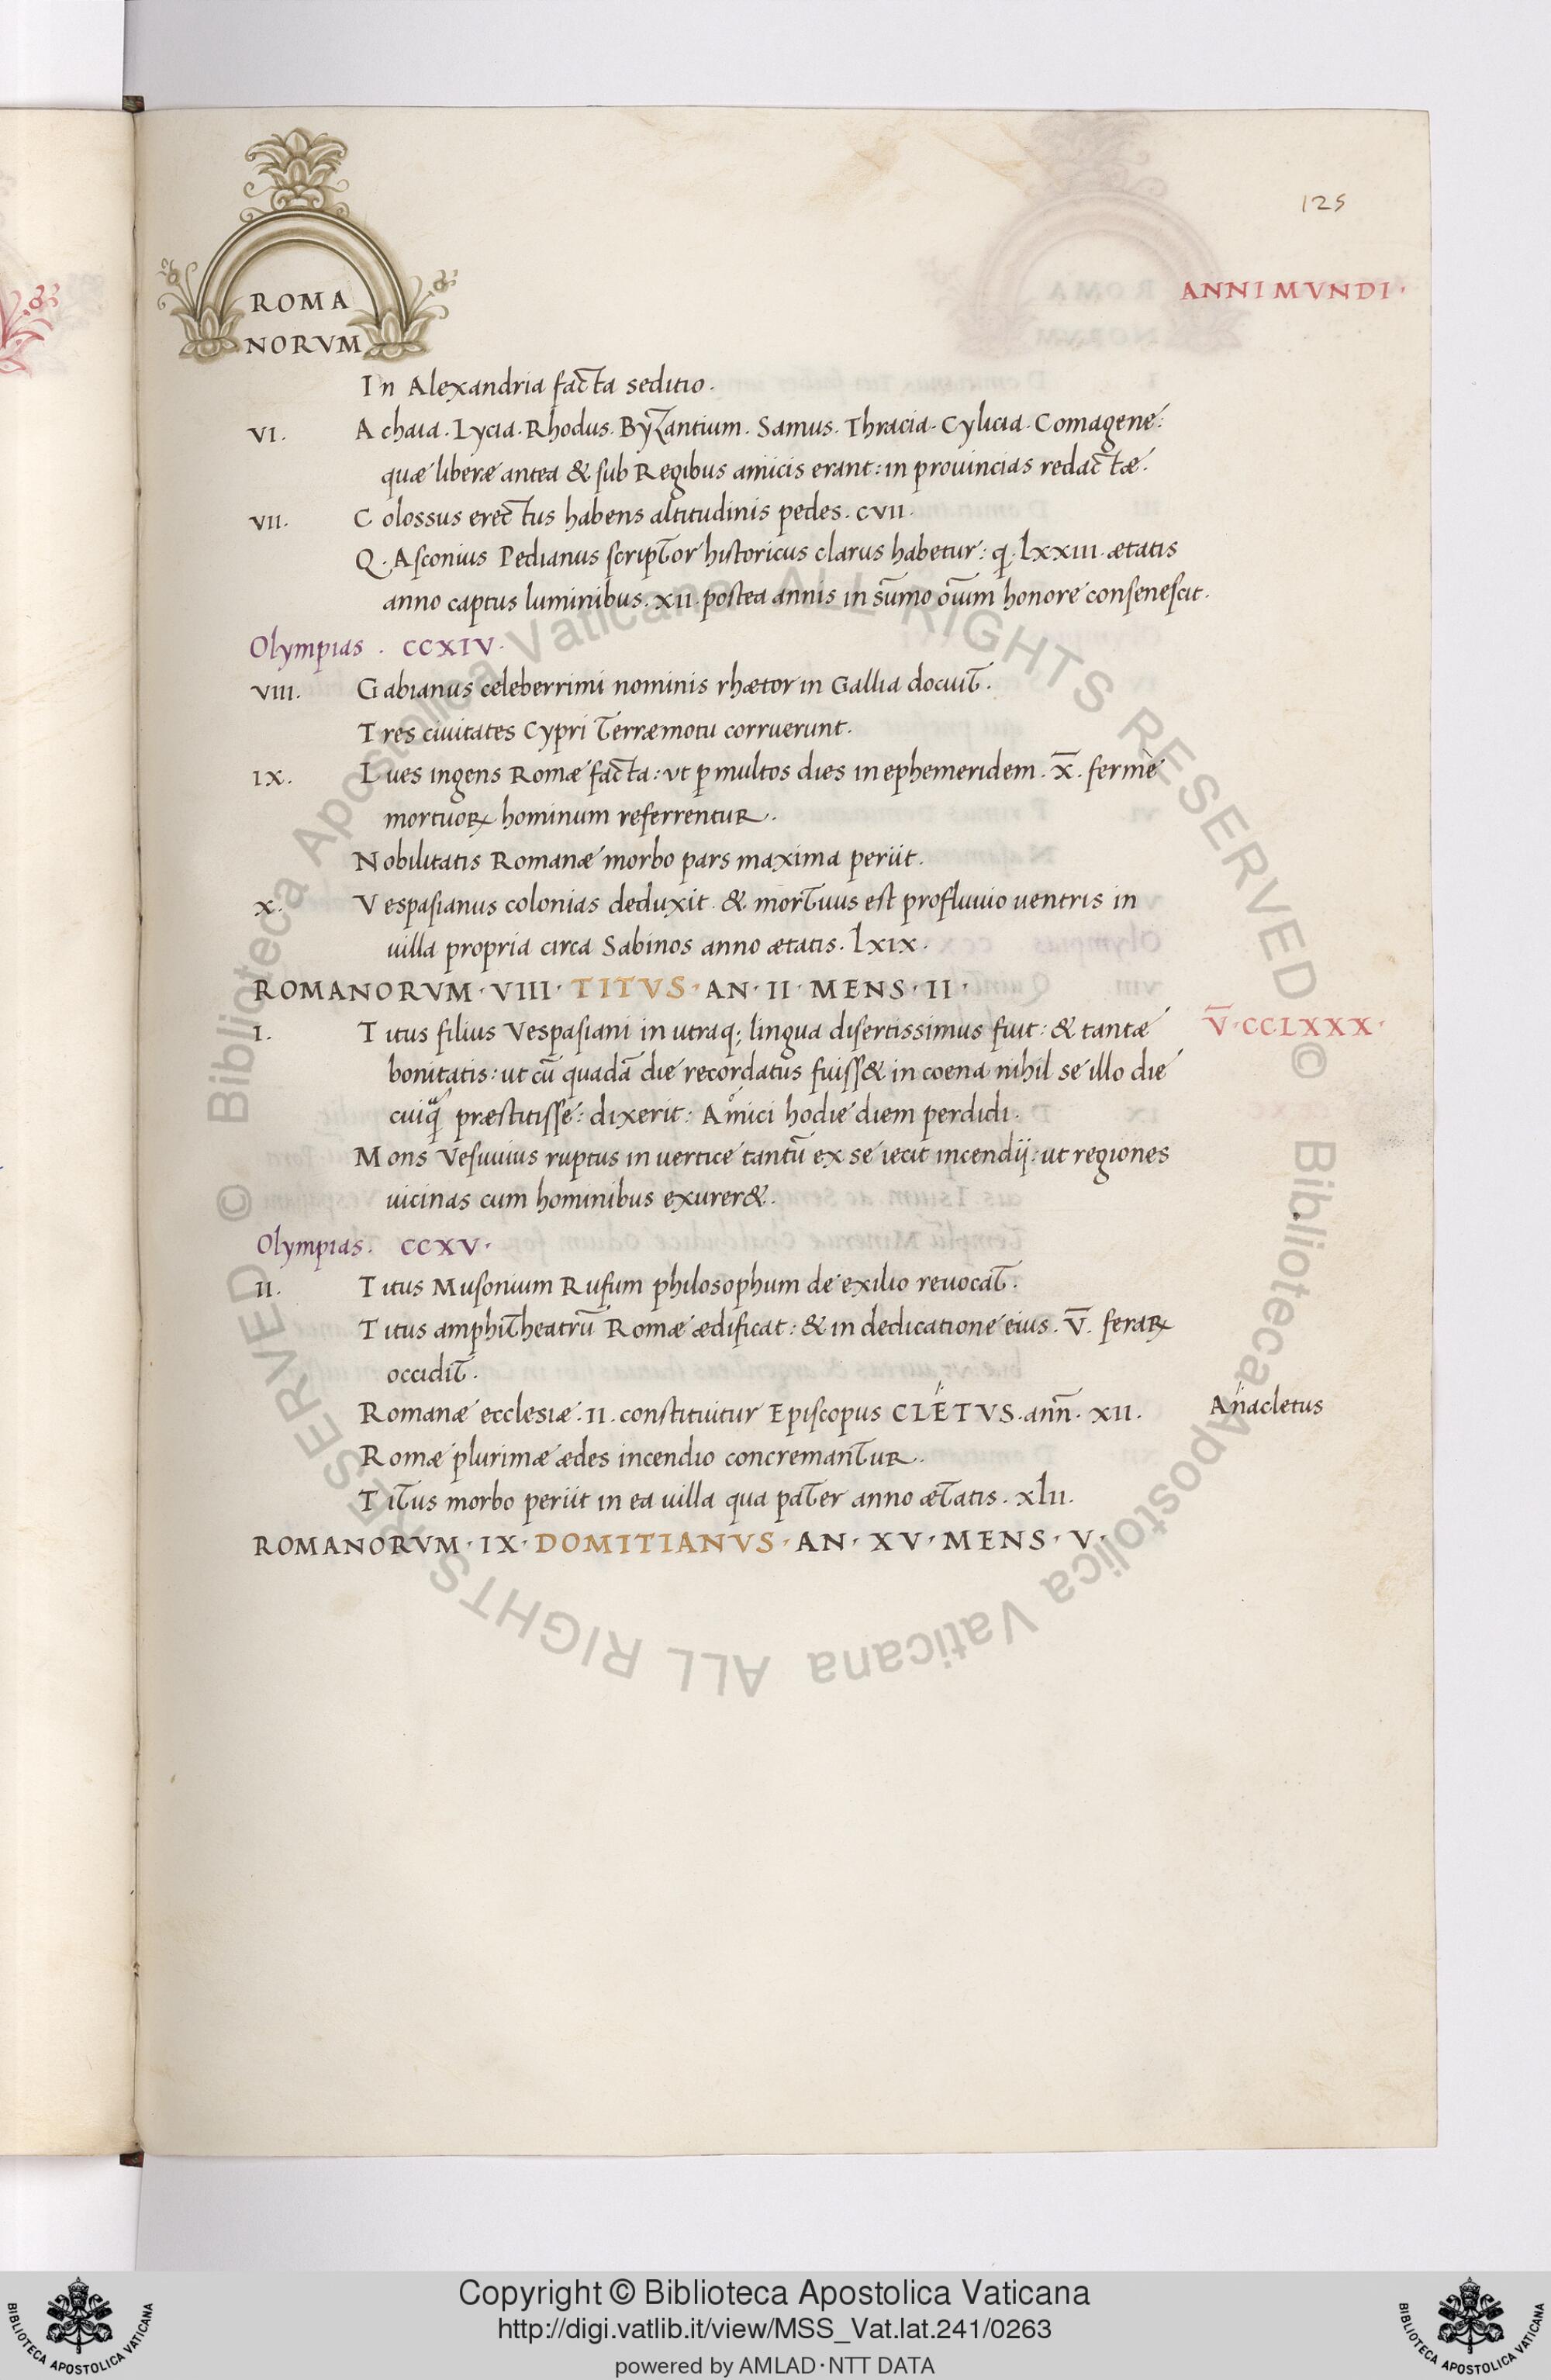 125
ROMA
NORVM
ANNI MVNDI ·
In Alexandria facta seditio .
VI. Achaia . Lycia . Rhodus . Byzantium . Samus . Thracia . Cylicia . Comagene :
quæ liberæ antea & sub Regibus amicis erant : in prouincias redactæ .
VII. Colossus erectus habens altitudinis pedes . CVII .
Q . Asconius Pedianus scriptor historicus clarus habetur : q . lxxiii . ætatis
anno captus luminibus . xii . postea annis in sūmo oīum honore consenescit .
Olympias . CCXIV .
VIII. Gabianus celeberrimi nominis rhætor in Gallia docuit .
Tres ciuitates Cypri terræmotu corruerunt .
IX. Lues ingens Romæ facta : ut ꝑ multos dies in ephemeridem . X̅ . fermè
mortuoꝝ hominum referrentur .
Nobilitatis Romanæ morbo pars maxima periit .
X. Vespasianus colonias deduxit . & mortuus est profluuio uentris in
uilla propria circa Sabinos anno ætatis . lxix .
ROMANORVM · VIII · TITVS · AN · II · MENS · II ·
I. Titus filius Vespasiani in utraq; lingua disertissimus fuit : & tantæ V̅ · CCLXXX ·
bonitatis : ut cū quadā die recordatus fuiss& in coena nihil se illo die
cuiq̃ præstitisse : dixerit : Amici hodie diem perdidi .
Mons Vesuuius ruptus in uertice tantū ex se iecit incendij : ut regiones
uicinas cum hominibus exurer& .
Olympias . CCXV ·
II. Titus Musonium Rufum philosophum de exilio reuocat .
Titus amphitheatrū Romæ ædificat : & in dedicatione eius . V̅ . feraꝝ
occidit .
Romanæ ecclesiæ . II . constituitur Episcopus CLETVS . anñ . XII . Anacletus
Romæ plurimæ ædes incendio concremantur .
Titus morbo periit in ea uilla qua pater anno ætatis . xlii .
ROMANORVM · IX · DOMITIANVS · AN · XV · MENS · V ·
© Biblioteca Apostolica Vaticana ALL RIGHTS RESERVED © Biblioteca Apostolica Vaticana ALL RIGHTS RESERVED
Copyright © Biblioteca Apostolica Vaticana
http://digi.vatlib.it/view/MSS_Vat.lat.241/0263
powered by AMLAD·NTT DATA
BIBLIOTECA APOSTOLICA VATICANA
BIBLIOTECA APOSTOLICA VATICANA